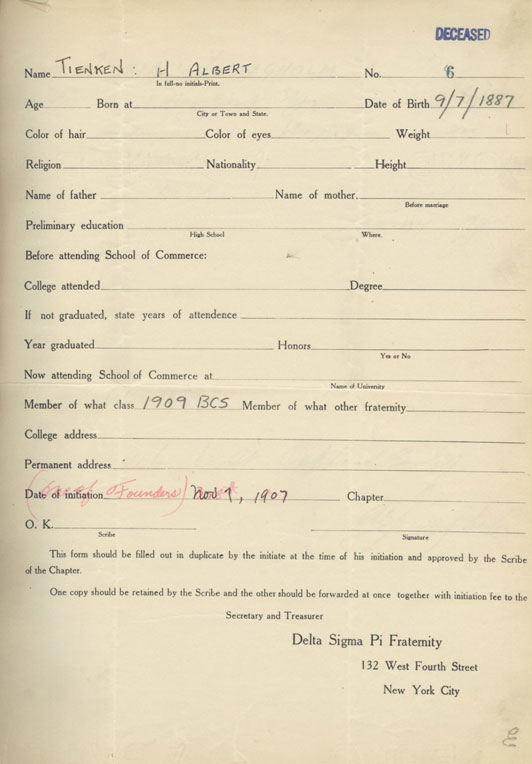 DECEASED
Name TIENKEN : H ALBERT No. 6
In full-no initials-Print.
Age Born at Date of Birth 9/7/1887
City or Town and State.
Color of hair Color of eyes Weight
Religion Nationality Height
Name of father Name of mother.
Before marriage
Preliminary education
High School Where.
Before attending School of Commerce:
College attended Degree
If not graduated, state years of attendence
Year graduated Honors
Yes or No
Now attending School of Commerce at
Name of University
Member of what class 1909 BCS Member of what other fraternity
College address
Permanent address
Date of initiation (one of Founders) Nov 7, 1907 Chapter
O. K.
Scribe Signature
This form should be filled out in duplicate by the initiate at the time of his initiation and approved by the Scribe
of the Chapter.
One copy should be retained by the Scribe and the other should be forwarded at once together with initiation fee to the
Secretary and Treasurer
Delta Sigma Pi Fraternity
132 West Fourth Street
New York City